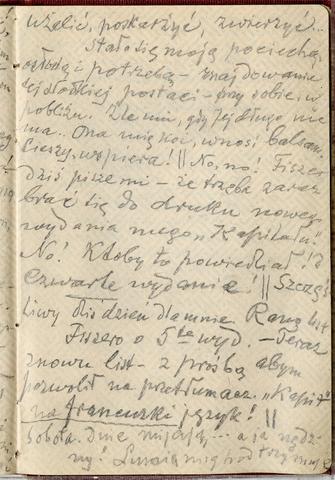 użalić, poskarżyć, zwierzyć...
Stało się moją pociechą,
osłodą i potrzebą - znajdowanie
tej słodkiej postaci - przy sobie, w
pobliżu. Źle mi, gdy jej długo nie
ma.. Ona mię koi, wnosi balsam,
cieszy, wspiera! || No, no! Fiszer
dziś pisze mi - że trzeba zaraz
brać się do druku nowego
wydania mego „Kapitału".
No! Któby to powiedział!?
Czwarte wydanie! || Szczęś
liwy dziś dzień dla mnie Rano list
Fiszera o 5te wyd. - Teraz
znowu list - z prośbą abym
pozwolił na przetłumacz. „Kapit"
na francuzki język! ||
Sobota. Dnie mijają... a ja